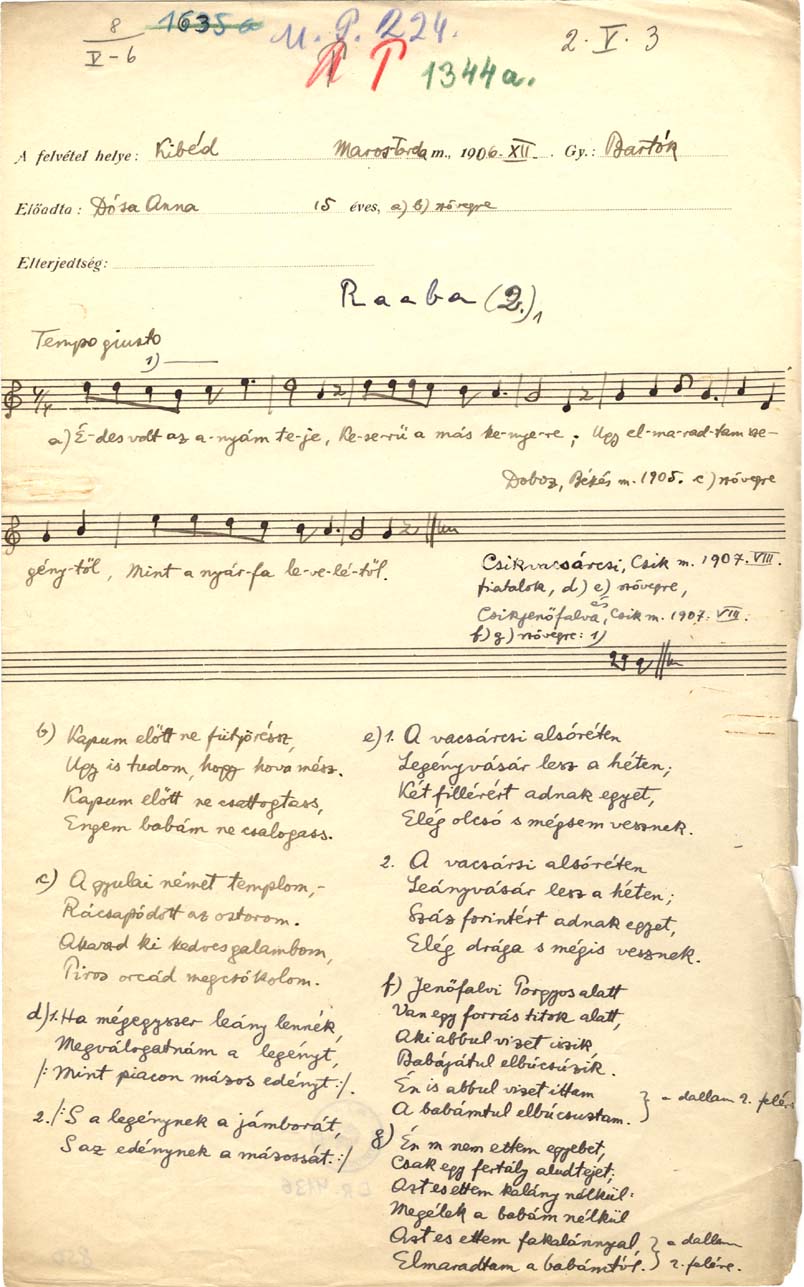 8
V-6
1635a
M. P. 224.
P
1344a.
2. V. 3
A felvétel helye: Kibéd Marostorda m., 1906. XII. Gy.: Bartók
Előadta: Dósa Anna 15 éves, a) b) szövegre
Elterjedtség:
Raaba (2.)1
Tempo giusto
1)
a) É-des volt az a-nyám te-je, Ke-se-rü a más ke-nye-re; Ugy el-ma-rad-tam sze-
Doboz, Békés m. 1905. c) szövegre
gény-től, Mint a nyár-fa le-ve-lé-től.
Csikvacsárcsi, Csik m. 1907. VIII.
fiatalok, d) e) szövegre,
és
Csikjenőfalva, Csik m. 1907. VIII.
f) g) szövegre: 1)
b) Kapum előtt ne fütyöréssz,
Ugy is tudom, hogy hova mész.
Kapum előtt ne csattogtass,
Engem babám ne csalogass.
c) A gyulai német templom,-
Rácsapódott az ostorom.
Akaszd ki kedves galambom,
Piros orcád megcsókolom.
d) 1. Ha mégegyszer leány lennék,
Megválogatnám a legényt,
/: Mint piacon mázos edényt :/.
2. /: S a legénynek a jámborát,
S az edénynek a mázossát. :/
e) 1. A vacsárcsi alsóréten
Legényvásár lesz a héten;
Két fillérért adnak egyet,
Elég olcsó s mégsem vesznek.
2. A vacsársi alsóréten
Leányvásár lesz a héten;
Száz forintért adnak egyet,
Elég drága s mégis vesznek.
f) Jenőfalvi Porgyos alatt
Van egy forrás titok alatt,
Aki abbul vizet iszik
Babájátul elbúcsúzik.
Én is abbul vizet ittam
A babámtul elbúcsuztam. } a dallam 2. felére
g) Én m nem ettem egyebet,
Csak egy fertály aludtejet;
Azt es ettem kalány nélkül:
Megélek a babám nélkül
Azt es ettem fakalánnyal, } a dallam
Elmaradtam a babámtól. } 2. felére.
DR. 4136
850